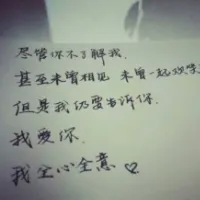 尽管你不了解我.
甚至未曾相见 未曾一起欢笑
但是我仍要告诉你.
我爱你.
我全心全意♡